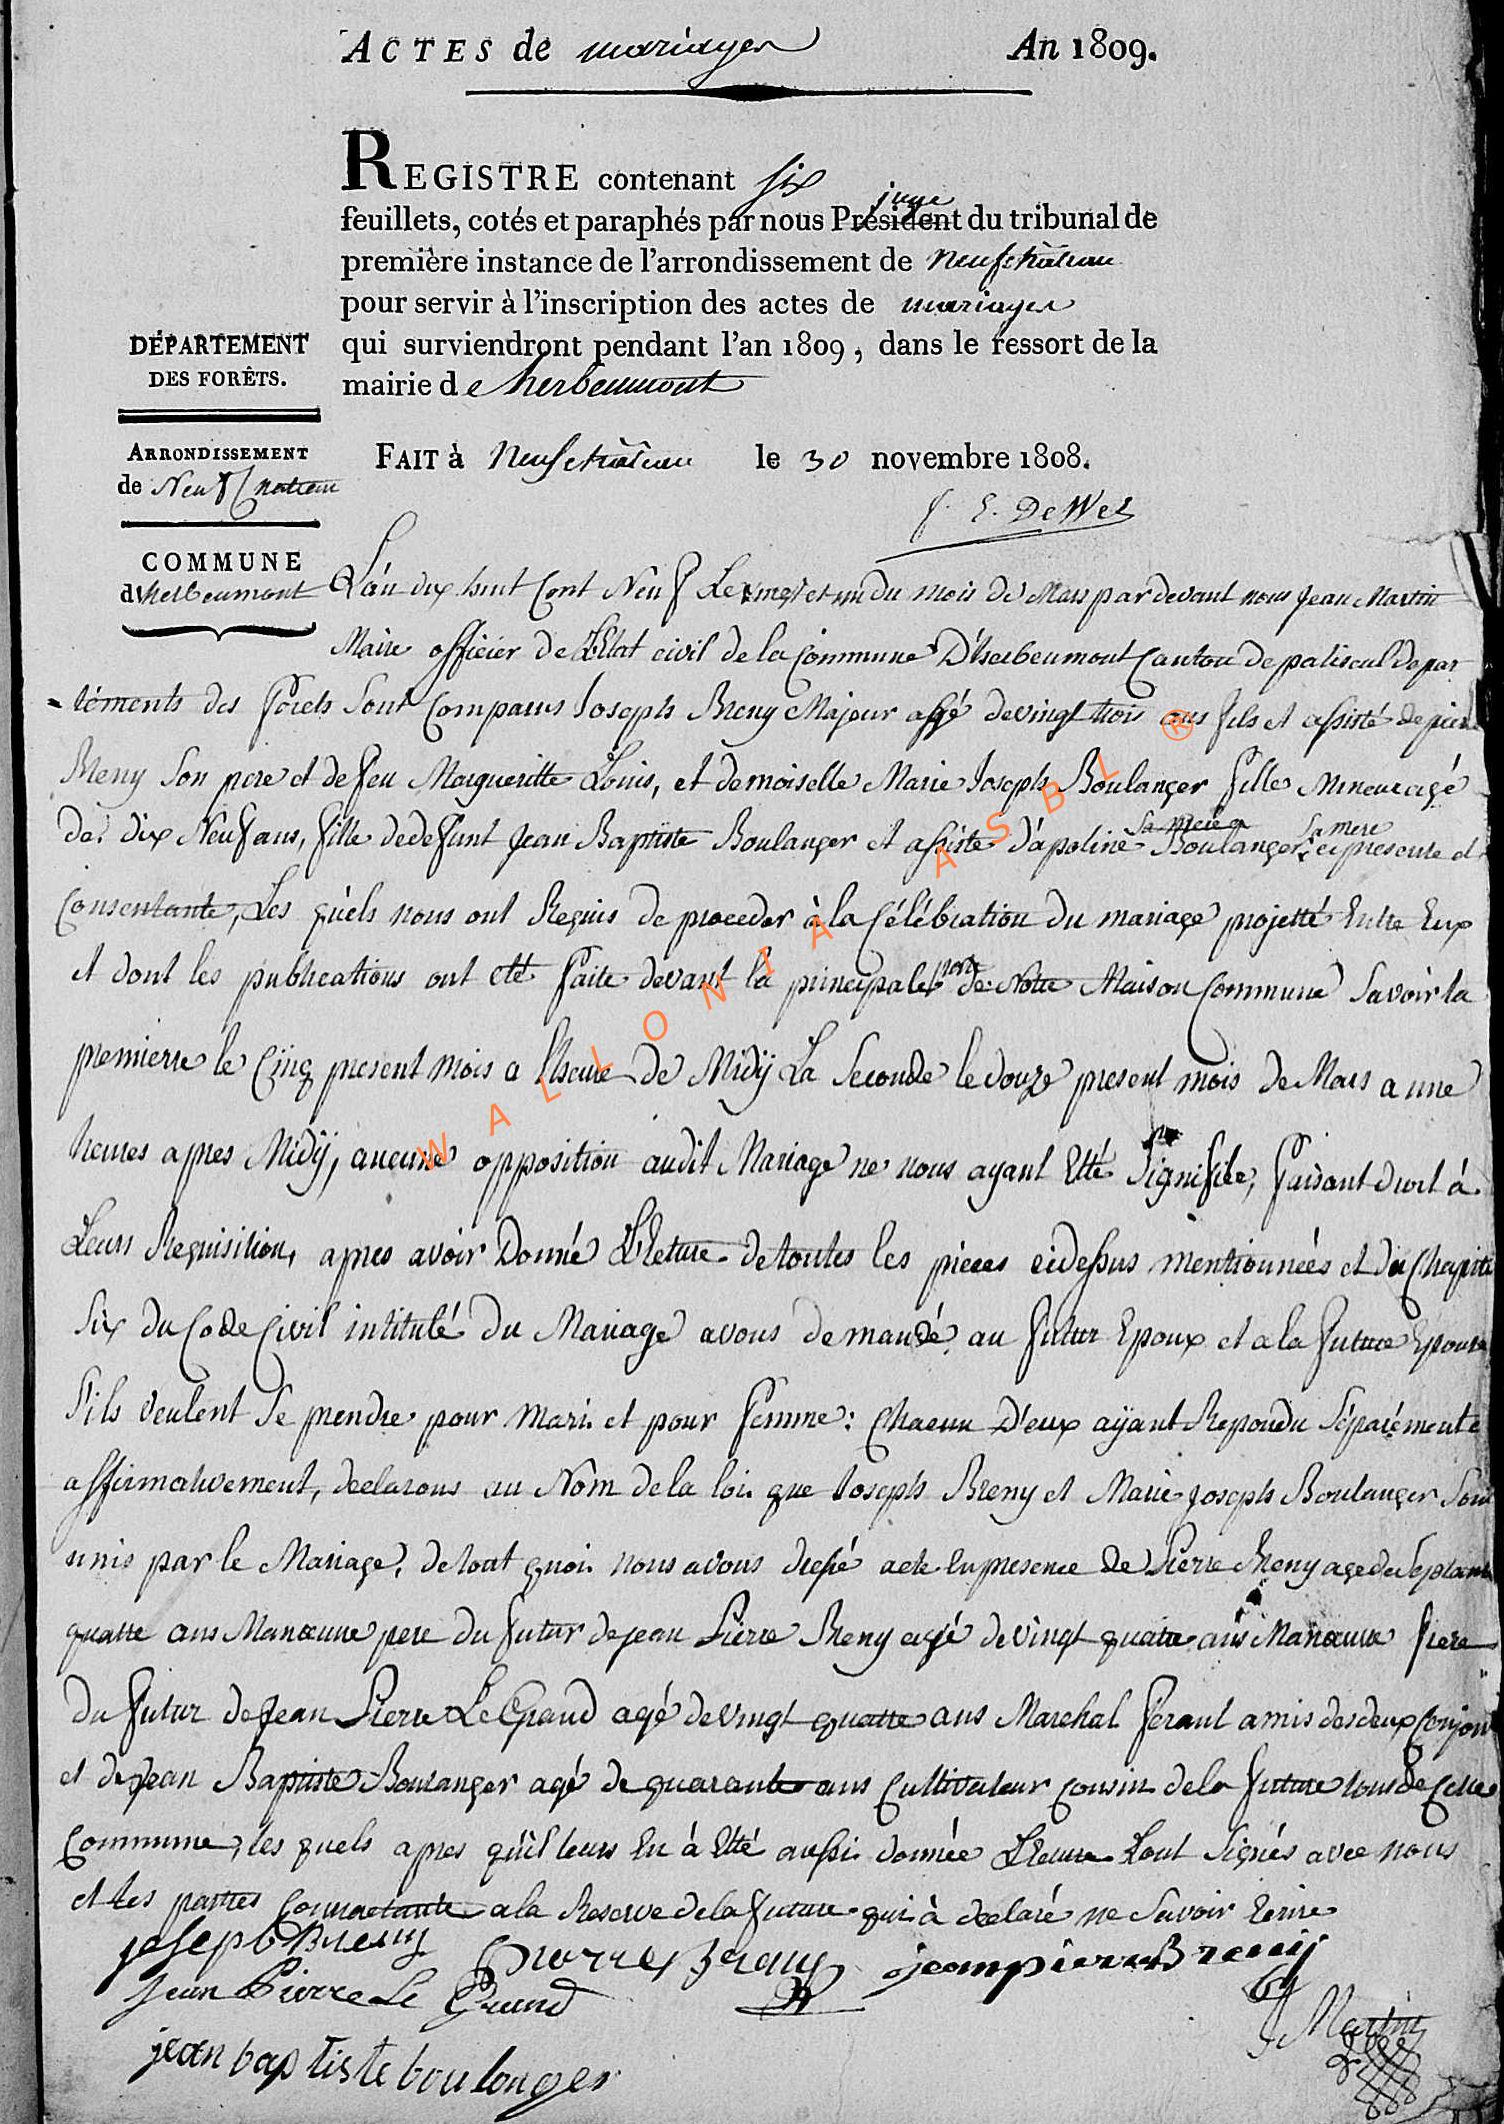 ACTES de mariages An 1809.
REGISTRE contenant six
feuillets, cotés et paraphés par nous Président juge du tribunal de
première instance de l'arrondissement de Neufchâteau
pour servir à l'inscription des actes de mariages
qui surviendront pendant l'an 1809, dans le ressort de la
mairie de herbeumont
FAIT à Neufchâteau le 30 novembre 1808.
DÉPARTEMENT
DES FORÊTS.
ARRONDISSEMENT
de Neufchateau
COMMUNE
d'herbeumont
L'án dix huit Cent Neuf Le vingt et un du mois de Mars pardevant nous Jean Martin
Maire officier de L'Etat civil de la Commune D'herbeumont Canton de paliseul depar
-téments des forets Sont Comparus Joseph Breny Majeur agé de vingt trois ans fils et assisté de pierre
Breny Son pere et de feu Margueritte Louis, et demoiselle Marie Joseph Boulanger fille Mineur agé
de dix Neuf ans, fille de defunt Jean Baptiste Boulanger et assiste d'apoline Boulanger, Sa mere ci presente et
Consentante, Les quels nous ont Requis de proceder à la Célébration du mariage projetté Entre Eux
et dont les publications ont etté faite devant la principale porte de Notre Maison Commune Savoir la
premierre le Cinq present mois a L'heure de Midÿ La Seconde le douze present mois de Mars a une
heures apres Midÿ, aucune opposition audit Mariage ne nous ayant Etté Signifiée, faisant droit á
Leurs Requisition, apres avoir Donné LEcture de toutes les pieces cidessus mentionnées et du Chapitre
Six du Code Civil intitulé du Mariage avons demandé au futur Epoux et a la future Epouse
S'ils veulent Se prendre pour mari et pour femme: Chacun D'eux aÿant Repondu Séparémente
affirmativement, declarons au Nom de la loi que Joseph Breny et Marie Joseph Boulanger Sont
unis par le Mariage, de tout quoi nous avons dressé acte En presence de Pierre Breny age de Septante
quatre ans Manœuvre pere du futur de jean Pierre Breny agé de vingt quatre ans Manœuvre frere
du futur de Jean Pierre LeGrand agé de vingt quatre ans Marchal ferant amis des deux Conjoint
et de Jean Baptiste Boulanger agé de quarante ans Cultivateur Cousin de la future tous de Cette
Commune, les quels apres qu'il leurs En à Etté aussi donnée LEcture Lont Signés avec nous
et les parties Contractante a la Reserve de la future qui à declaré ne Savoir Ecrire
joseph Breny Pierre Breny jean pierre Breny
Jean Pierre Le Grand
J Martin
jean baptiste boulanger
WALLONIA ASBL ®